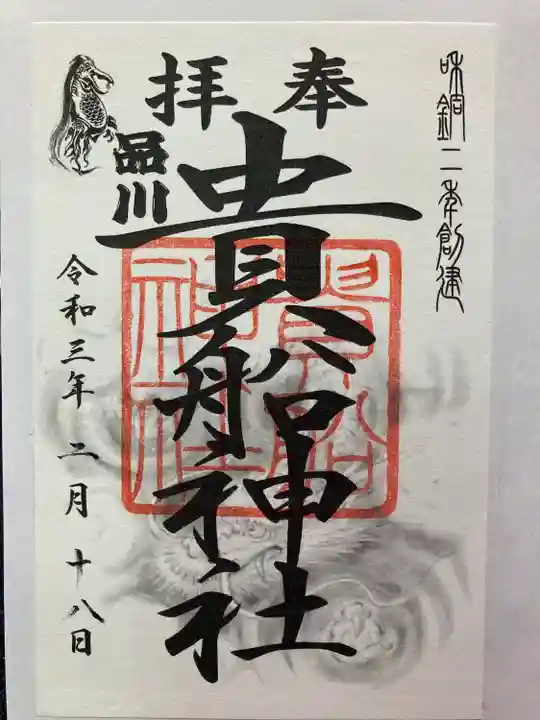 咊銅二年創建
奉拝
品川
貴船神社
貴船
神社
令和三年 二月 十八日